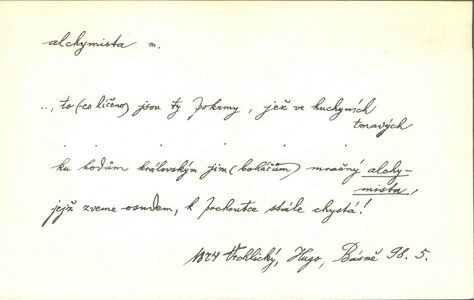 alchymista m.
.., to (co líčeno) jsou ty pokrmy, jež ve kuchyních
tmavých
. . . . .
ku hodům královským jim (boháčům) mračný alchy-
mista,
jejž zveme osudem, k pochoutce stále chystá!
1874 Vrchlický, Hugo, Básně 98. 5.